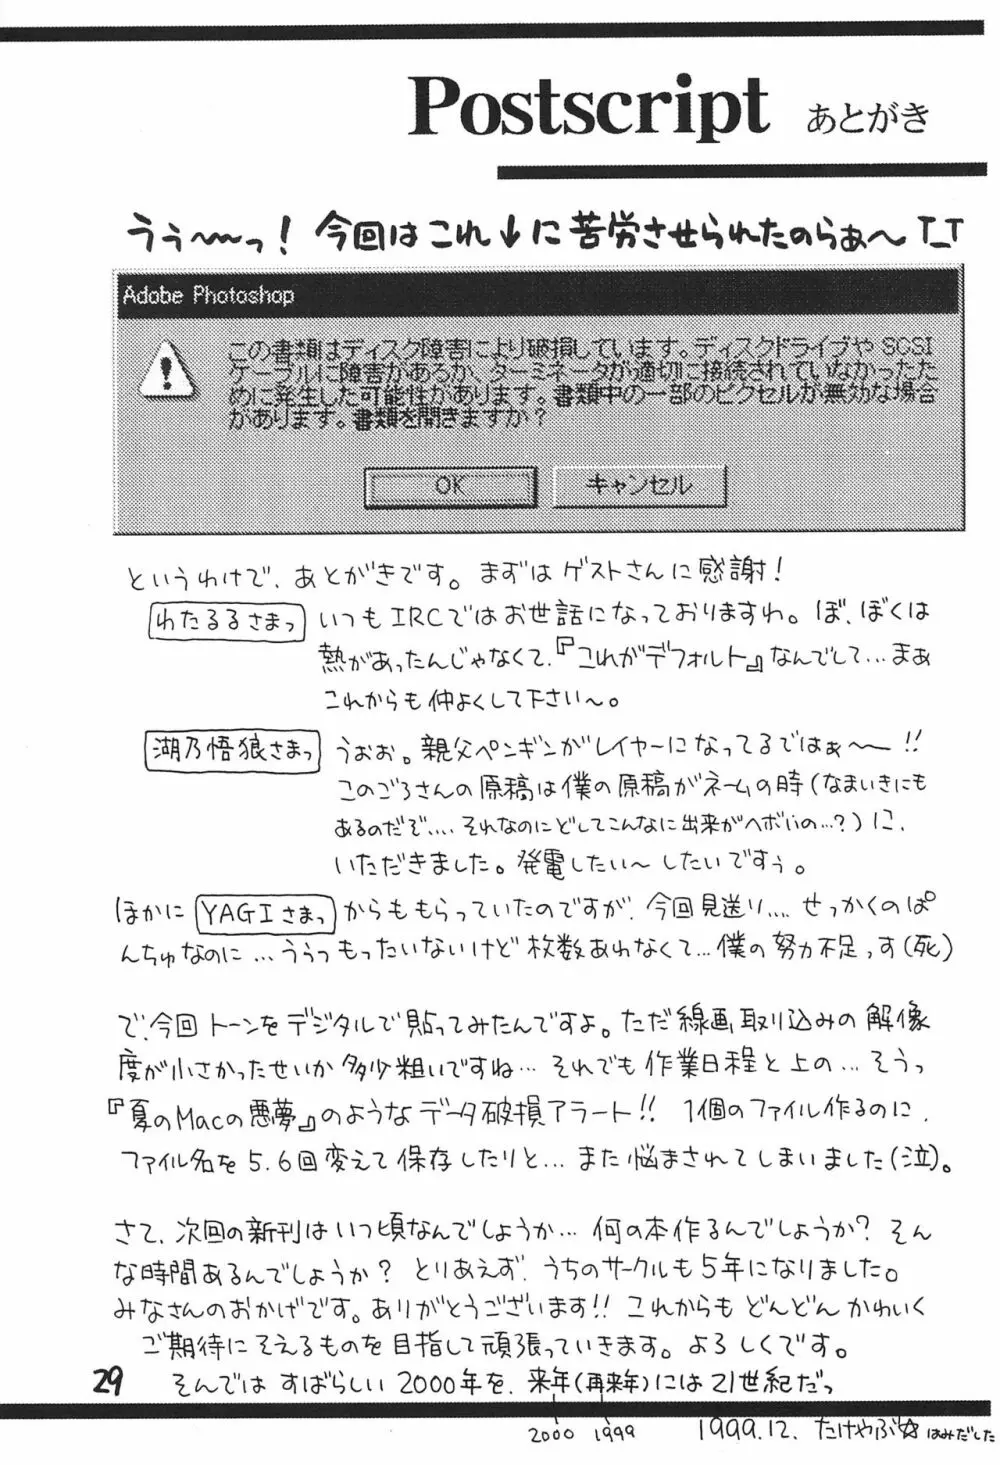 Postscript あとがき
うぅ〜〜っ! 今回はこれ↓に苦労させられたのらぁ〜 T_T
Adobe Photoshop
この書類はディスク障害により破損しています。ディスクドライブや SCSI
ケーブルに障害があるか、ターミネータが適切に接続されていなかったた
めに発生した可能性があります。書類中の一部のピクセルが無効な場合
があります。書類を開きますか?
OK キャンセル
というわけで、あとがきです。まずはゲストさんに感謝!
わたるるさまっ いつもIRCではお世話になっておりますわ。ぼ、ぼくは
熱があったんじゃなくて、『これがデフォルト』なんでして…まあ
これからも仲よくして下さい〜。
湖乃悟狼さまっ うおぉ。親父ペンギンがレイヤーになってるではぁ〜〜!!
このごろさんの原稿は僕の原稿がネームの時(なまいきにも
あるのだぞ....それなのにどしてこんなに出来がヘボいの…?)に、
いただきました。発電したい〜したいですぅ。
ほかに YAGIさまっ からももらっていたのですが、今回見送り.... せっかくのぱ
んちゅなのに…ううっもったいないけど枚数あわなくて…僕の努力不足っす(死)
で、今回トーンをデジタルで貼ってみたんですよ。ただ線画取り込みの解像
度が小さかったせいか多少粗いですね…それでも作業日程と上の…そうっ
『夏のMacの悪夢』のようなデータ破損アラート!! 1個のファイル作るのに、
ファイル名を5.6回変えて保存したりと…また悩まされてしまいました(泣)。
さて、次回の新刊はいつ頃なんでしょうか…何の本作るんでしょうか? そん
な時間あるんでしょうか? とりあえず、うちのサークルも5年になりました。
みなさんのおかげです。ありがとうございます!! これからもどんどんかわいく
ご期待にそえるものを目指して頑張っていきます。よろしくです。
29 そんではすばらしい2000年を、来年(再来年)には21世紀だっ
2000 1999 1999.12. たけやぶ☆ はみだした